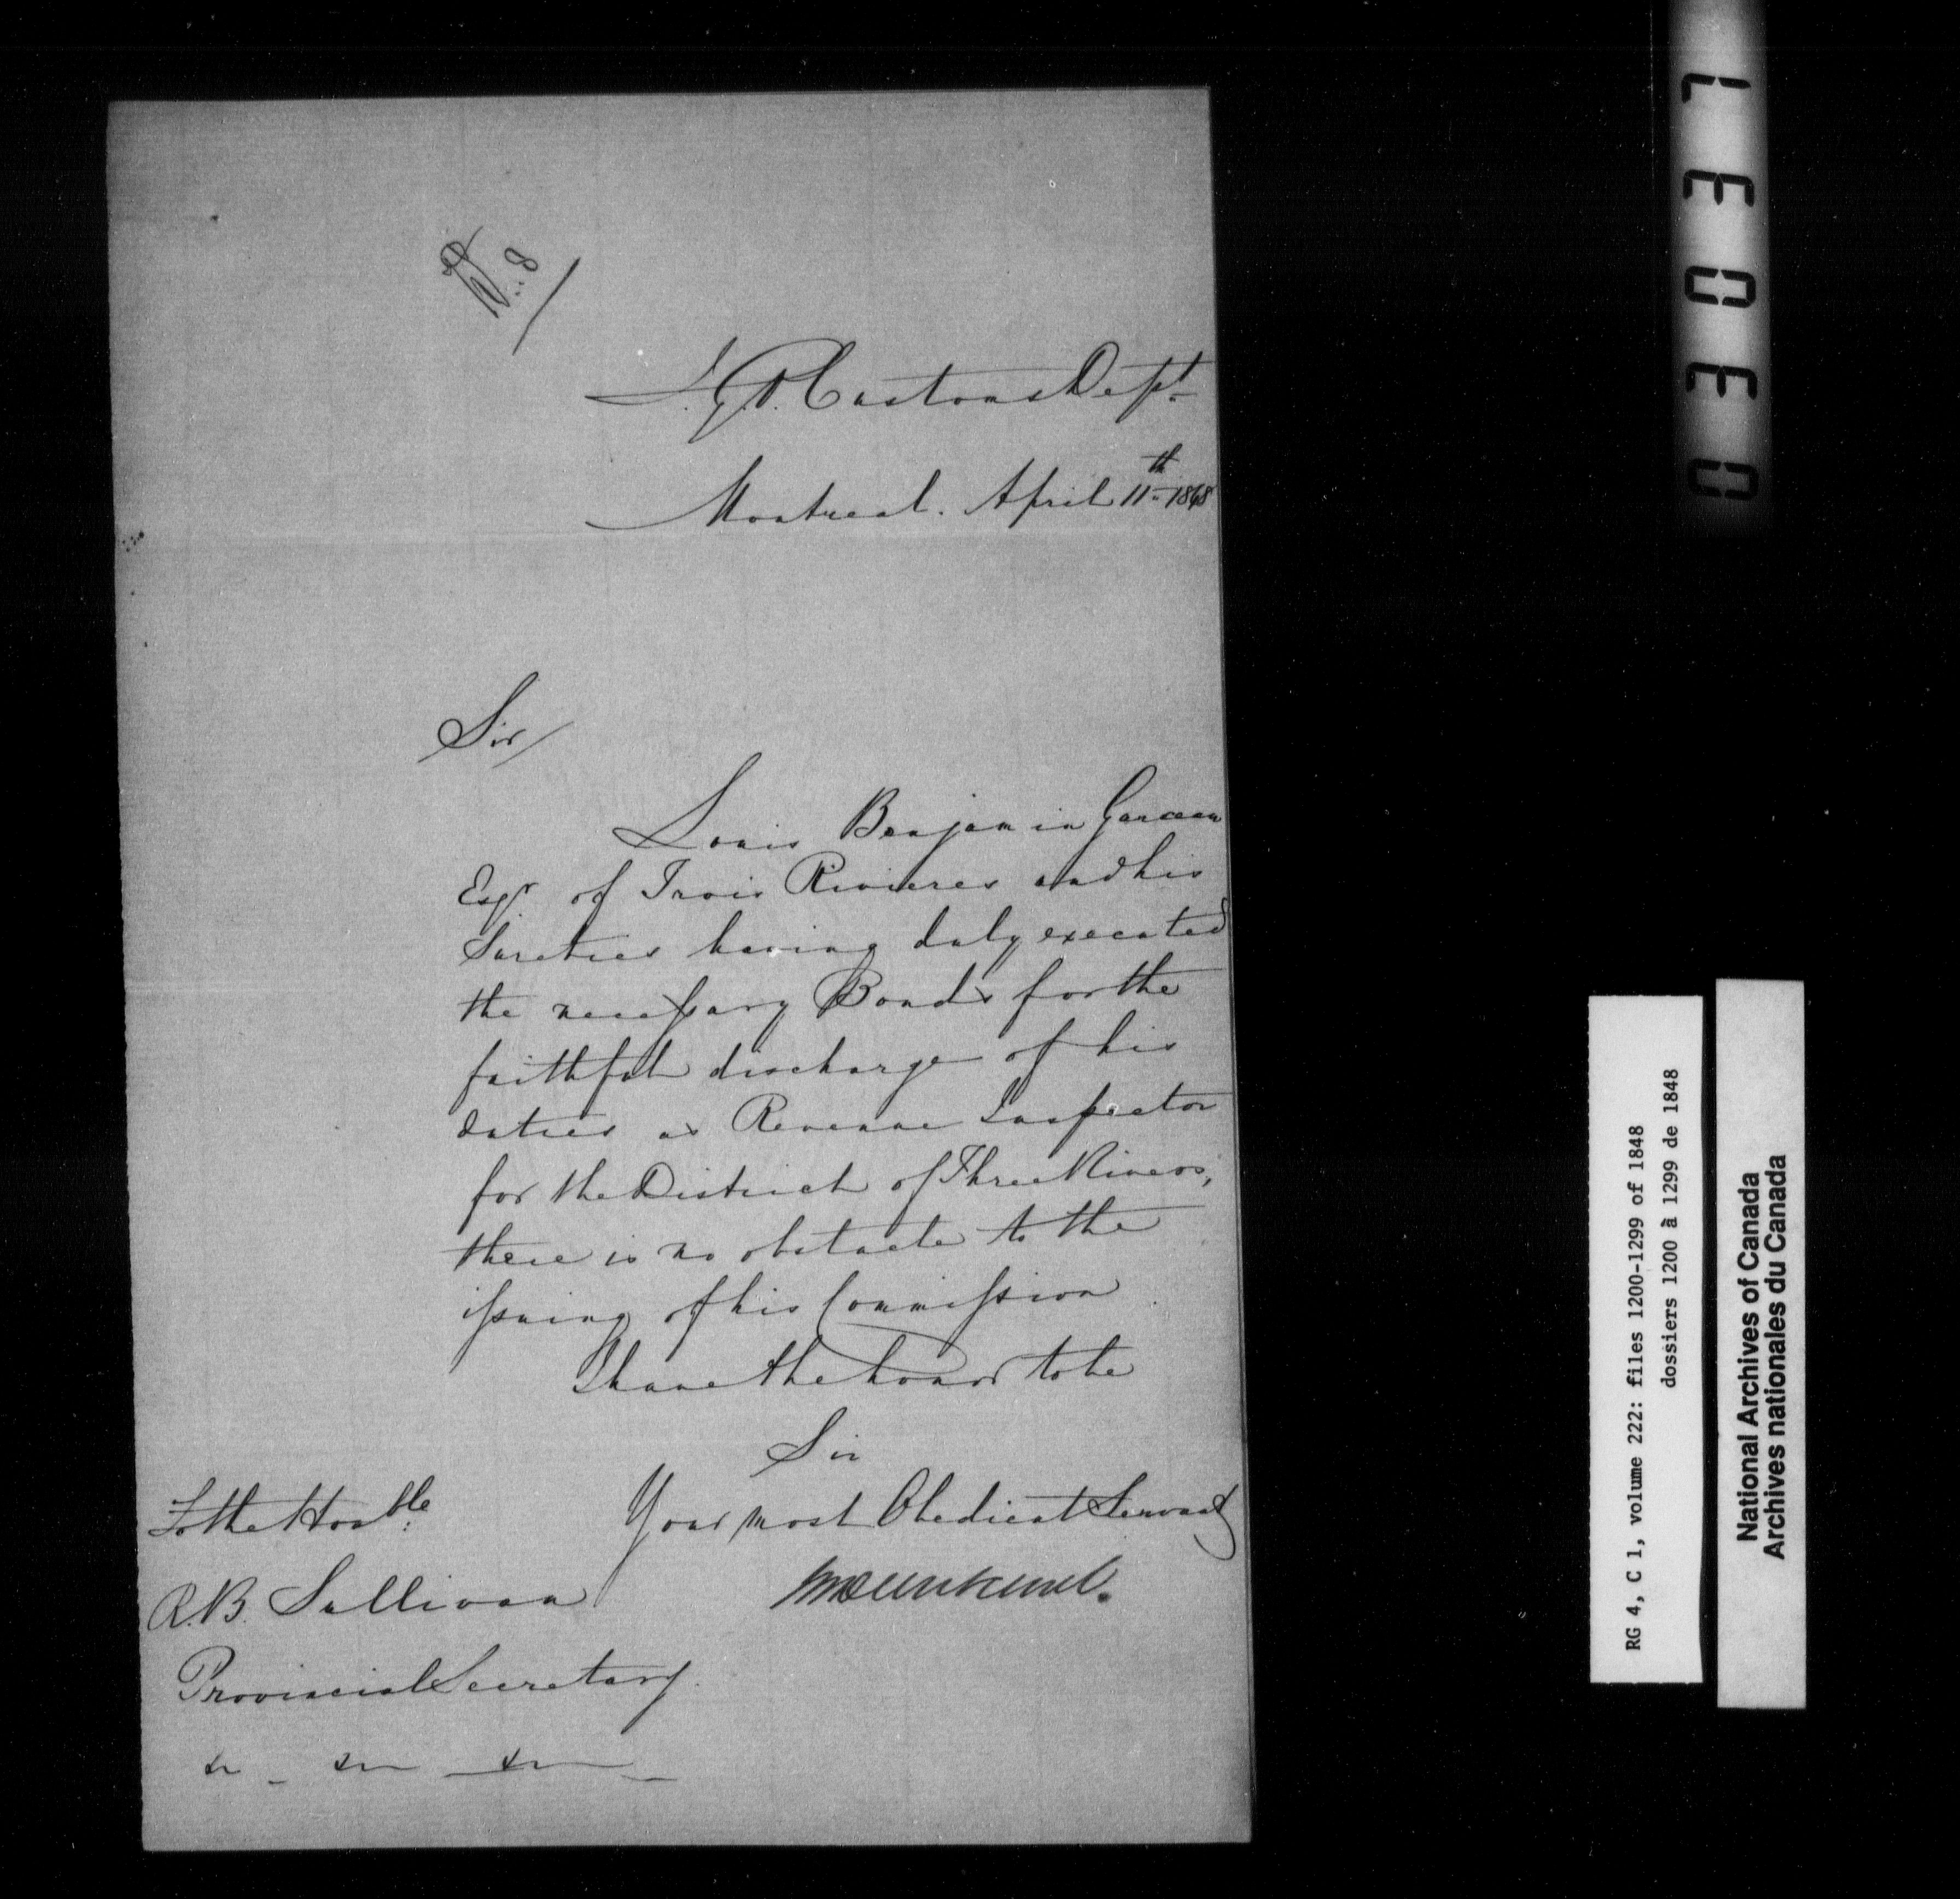 No. 8
I.G.O. Customs Dept.
Montreal. April 11th 1848
Sir
Louis Benjamin Garceau
Esqr of Trois Rivieres and his
Sureties having duly executed
the necessary Bonds for the
faithful discharge of his
duties as Revenue Inspector
for the District of Three Rivers,
there is no obstacle to the
issuing of his Commission
I have the honor to be
Sir
Your most Obedient Servant
To the Honble
R.B. Sullivan
Provincial Secretary.
&c - &c - &c -
03031
RG 4, C 1, volume 222: files 1200-1299 of 1848
dossiers 1200 à 1299 de 1848
National Archives of Canada
Archives nationales du Canada